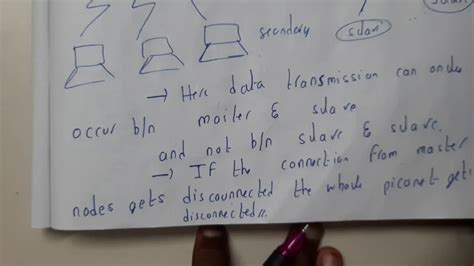 secondary
slave
→ Here data transmission can only
occur b/n master & slave
and not b/n slave & slave.
→ If the connection from master
nodes gets disconnected the whole piconet gets
disconnected//.